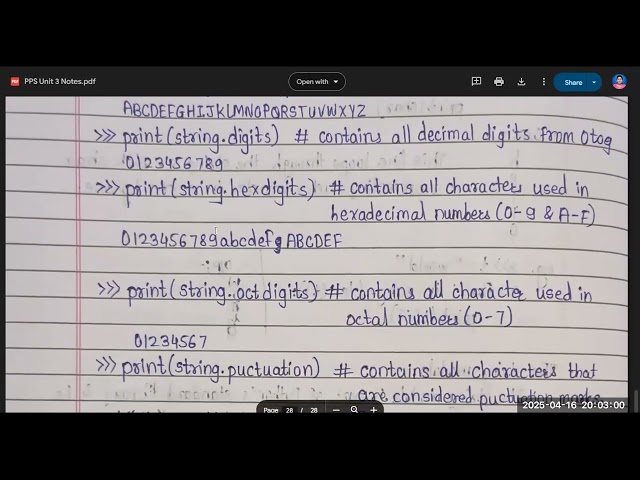 PPS Unit 3 Notes.pdf
Open with
Share
ABCDEFGHIJKLMNOPQRSTUVWXYZ
>>> print(string.digits) # contains all decimal digits from 0to9
0123456789
>>> print(string.hexdigits) # contains all characters used in
hexadecimal numbers (0-9 & A-F)
0123456789abcdefg ABCDEF
>>> print(string.octdigits) # contains all character used in
octal numbers (0-7)
01234567
>>> print(string.puctuation) # contains all characters that
are considered puctuation marks
Page 28 / 28
2025-04-16 20:03:00